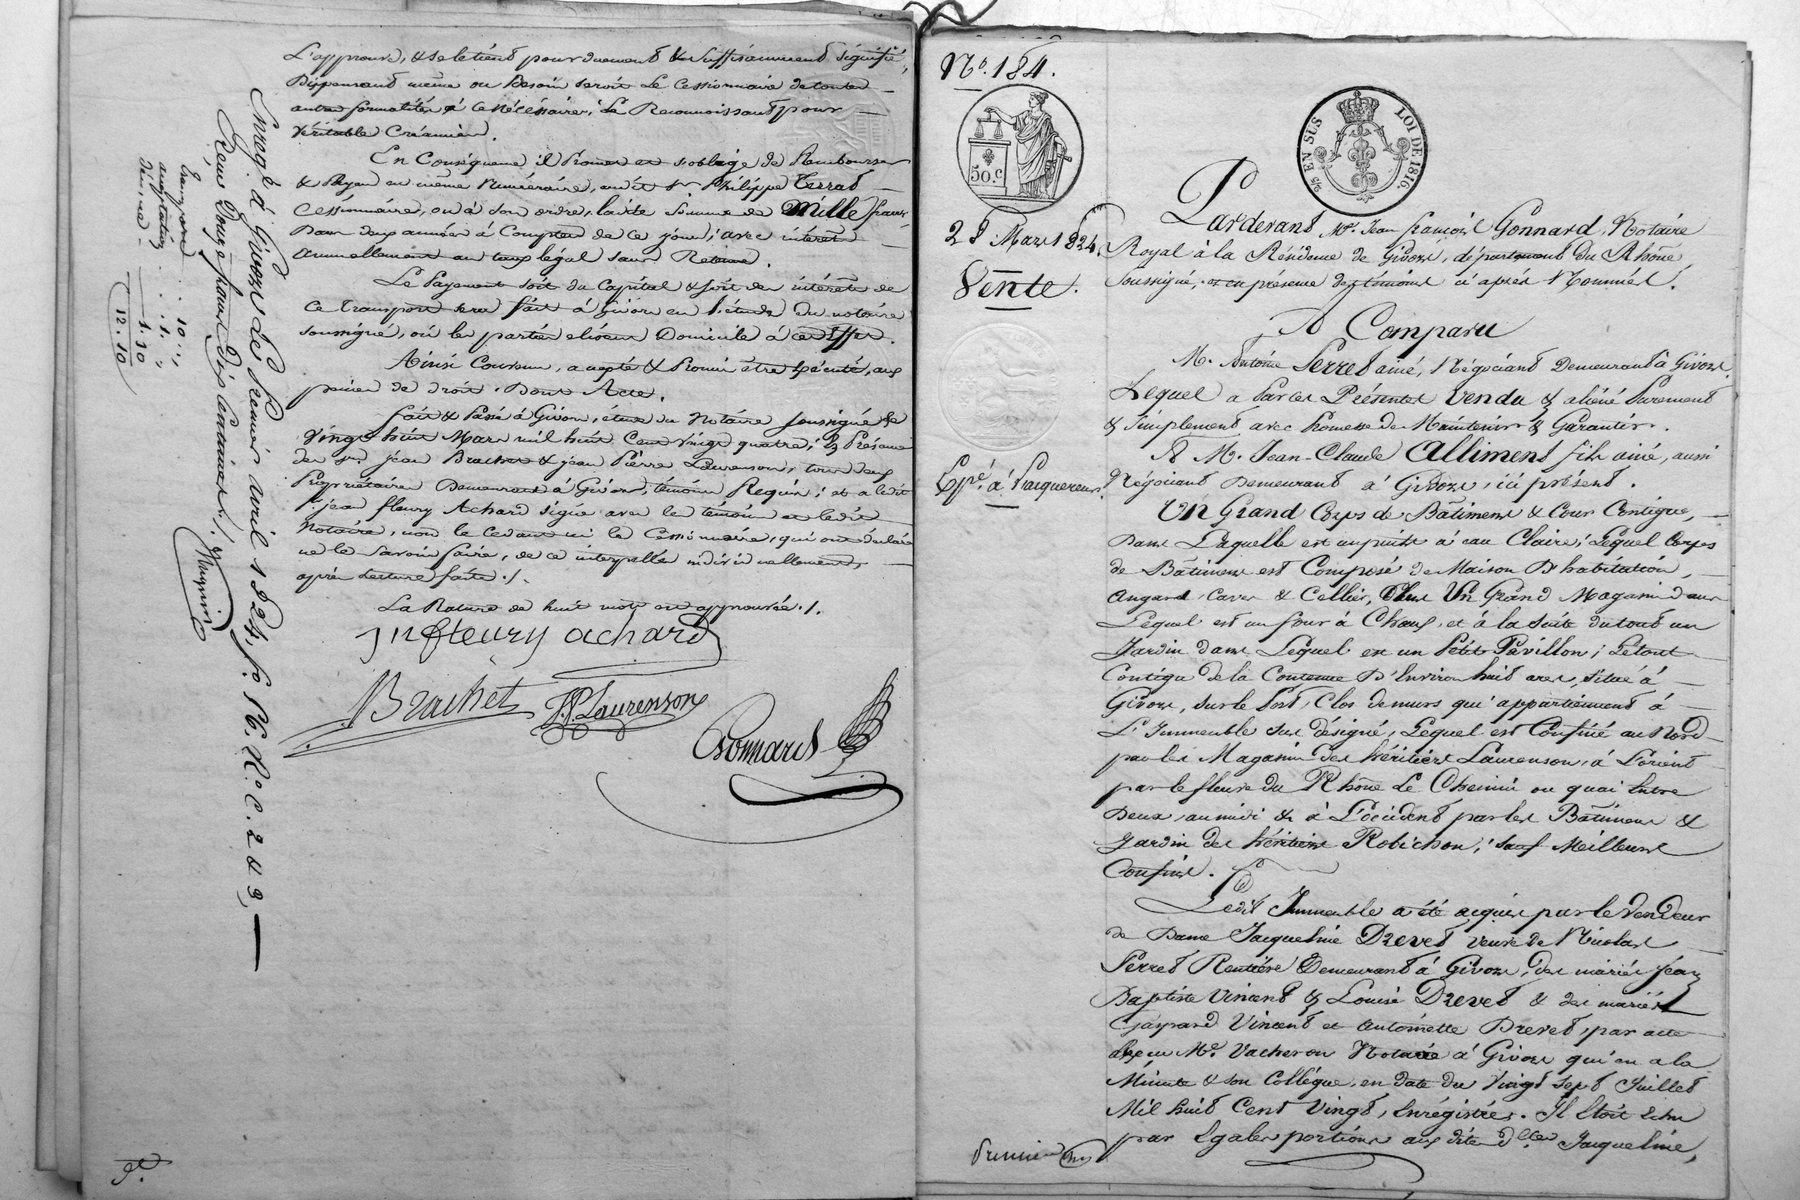 L'approuve, & se le tient pour duement & suffisamment signifié,
Dispensant même au besoin seroit le Cessionnaire de toutes
autres formalités à ce nécessaires; Le Reconnoissant pour
Véritable Créancier.
En Conséquence il Promet et s'oblige de Rembourser
& Payer en même Numéraire, audit Sr. Philippe Terrat
Cessionnaire, ou à son ordre, ladite Somme de Mille francs
Dans deux années à Compter de ce jour, avec intérêts
annuellement au taux légal sans Retenue.
Le Payement soit du Capital & soit des intérêts de
ce transport sera fait à Givors en l'étude du notaire
soussigné, où les parties élisent Domicile à cet Effet.
Ainsi Convenu, accepté & Promis être exécuté, aux
peines de droit. Dont Acte.
fait & Passé à Givors, étude du Notaire soussigné le
Vingt huit Mars mil huit Cent vingt quatre; En Présence
des Srs. jean Brachet & jean Pierre Laurenson, tous deux
Propriétaires Demeurant à Givors, témoins Requis; et a ledit
Sr. jean fleury Achard signé avec les témoins et ledit
Notaire, non le cédant ni le Cessionnaire, qui ont déclaré
ne le savoir faire, de ce interpellés individuellement,
après Lecture faite./.
La Rature de huit mots est approuvée./.
jn fleury achard
Brachet JP Laurenson
Gonnard
Enregé à Givors Le Premier avril 1824, fo. 16. Ro. C. 2 & 3,
Reçu Douze francs Dix Centimes./.
10 ,,
1. ,,
1. 10
12. 10
No. 184.
50. c
25 EN SUS LOI DE 1816.
28 Mars 1824.
Vente.
Expé. à l'acquéreur.
Pardevant Me. Jean françois Gonnard, Notaire
Royal à la Résidence de Givors, département du Rhône,
soussigné, et en présence des témoins ci après Nommés.
A Comparu
M. Antoine Perret ainé, Négociant Demeurant à Givors,
Lequel a par ces Présentes vendu & aliéné Purement
& Simplement avec Promesse de Maintenir & Garantir.
A M. Jean-Claude Alliment fils ainé, aussi
Négociant Demeurant à Givors, ici présent.
Un Grand Corps de Bâtiment & Cour Contigue,
Dans Laquelle est un puits à eau Claire; Lequel Corps
de Bâtiment est Composé de Maison D'habitation,
angard, caves & Cellier, Plus Un Grand Magasin dans
Lequel est un four à Chaux, et à la suite du tout un
Jardin dans Lequel est un Petit Pavillon; Le tout
Contigu de la Contenue D'Environ huit ares, situé à
Givors, sur le Port, Clos de murs qui appartiennent à
L'Immeuble sus désigné; Lequel est Confiné au Nord
par les Magasins des héritiers Laurenson, à L'orient
par le fleuve du Rhône Le Chemin ou quai Entre
Deux, au midi & à L'occident par les Bâtimens &
Jardin des héritiers Robichon; sauf Meilleurs
Confins.
Ledit Immeuble a été acquis par le Vendeur
de Dame Jacqueline Drevet veuve de Nicolas
Perret Rentière Demeurant à Givors, des mariés Jean
Baptiste Vincent & Louise Drevet & des mariés
Gaspard Vincent et Antoinette Drevet, par acte
Reçu Me. Vacheron Notaire à Givors qui en a la
Minute & son Collègue, en date du Vingt sept Juillet
Mil huit Cent Vingt, Enrégistré. Il étoit Echu
par Egales portions aux dites dlles Jacqueline,
Premier